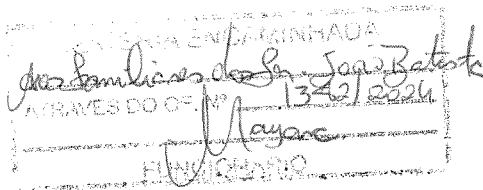 ENCAMINHADA
Aos familiares do Sr. João Batista
ATRAVÉS DO OF. Nº 1342/2024
Mayara
FUNCIONÁRIO